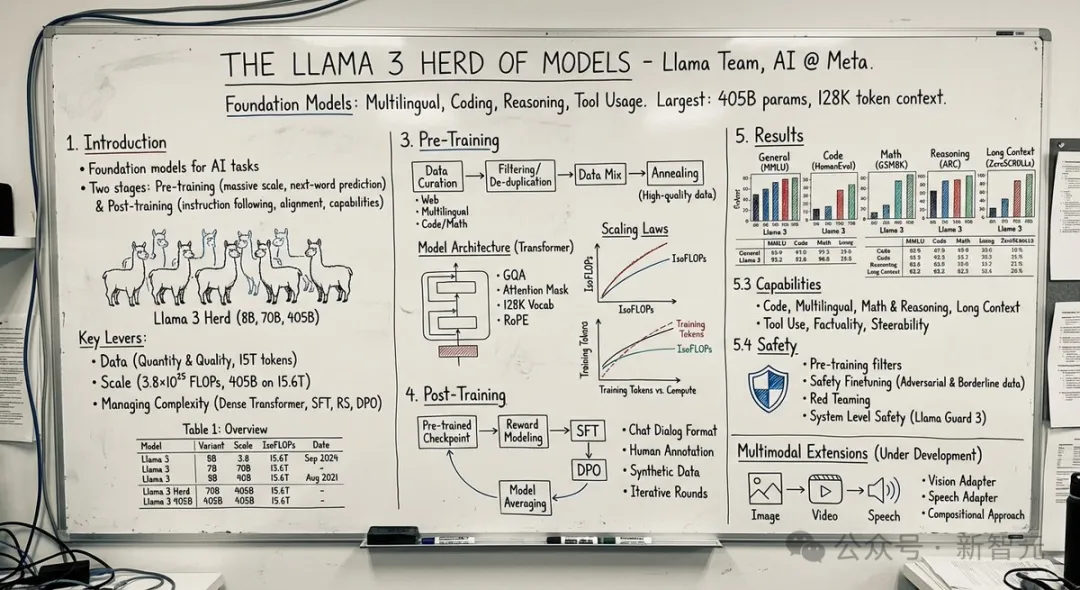 THE LLAMA 3 HERD OF MODELS - Llama Team, AI @ Meta.
Foundation Models: Multilingual, Coding, Reasoning, Tool Usage. Largest: 405B params, 128K token context.
1. Introduction
• Foundation models for AI tasks
• Two stages: Pre-training (massive scale, next-word prediction)
& Post-training (instruction following, alignment, capabilities)
Llama 3 Herd (8B, 70B, 405B)
Key Levers:
• Data (Quantity & Quality, 15T tokens)
• Scale (3.8×10²⁵ FLOPs, 405B on 15.6T)
• Managing Complexity (Dense Transformer, SFT, RS, DPO)
Table 1: Overview
Model Variant Scale IsoFLOPs Date
Llama 3 8B 3.8 15.6T Sep 2024
Llama 3 7B 70B 13.6T -
Llama 3 8B 40B 15.6T Aug 2021
Llama 3 Herd 70B 405B 15.6T -
Llama 3 405B 405B 405B 15.6T -
3. Pre-Training
Data Curation
Filtering/ De-duplication
Data Mix
Annealing
(High-quality data)
• Web
• Multilingual
• Code/Math
Model Architecture (Transformer)
• GQA
• Attention Mask
• 128K Vocab
• RoPE
Scaling Laws
IsoFLOPs
IsoFLOPs
IsoFLOPs
Training Tokens
IsoFLOPs
Training Tokens vs. Compute
4. Post-Training
Pre-trained Checkpoint
Reward Modeling
SFT
DPO
Model Averaging
• Chat Dialog Format
• Human Annotation
• Synthetic Data
• Iterative Rounds
5. Results
General (MMLU)
Code (HumanEval)
Math (GSM8K)
Reasoning (ARC)
Long Context (ZeroSCROLLs)
Llama 3
Llama 3
Llama 3
Llama 3
Llama 3
MMLU Code Math Long
General
Llama 3
MMLU Code Math Long
Code
Code
Reasoning
Long Context
5.3 Capabilities
• Code, Multilingual, Math & Reasoning, Long Context
• Tool Use, Factuality, Steerability
5.4 Safety
• Pre-training filters
• Safety Finetuning (Adversarial & Borderline data)
• Red Teaming
• System Level Safety (Llama Guard 3)
Multimodal Extensions (Under Development)
Image
Video
Speech
• Vision Adapter
• Speech Adapter
• Compositional Approach
公众号 · 新智元